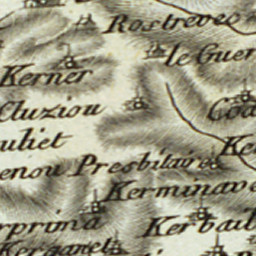 Rostrevec
le Guer
Kerner
Cluziou
Coa
uliet
Ke
enou Presbitaire
Kerminave
rprima
Kerbail
Kerganet